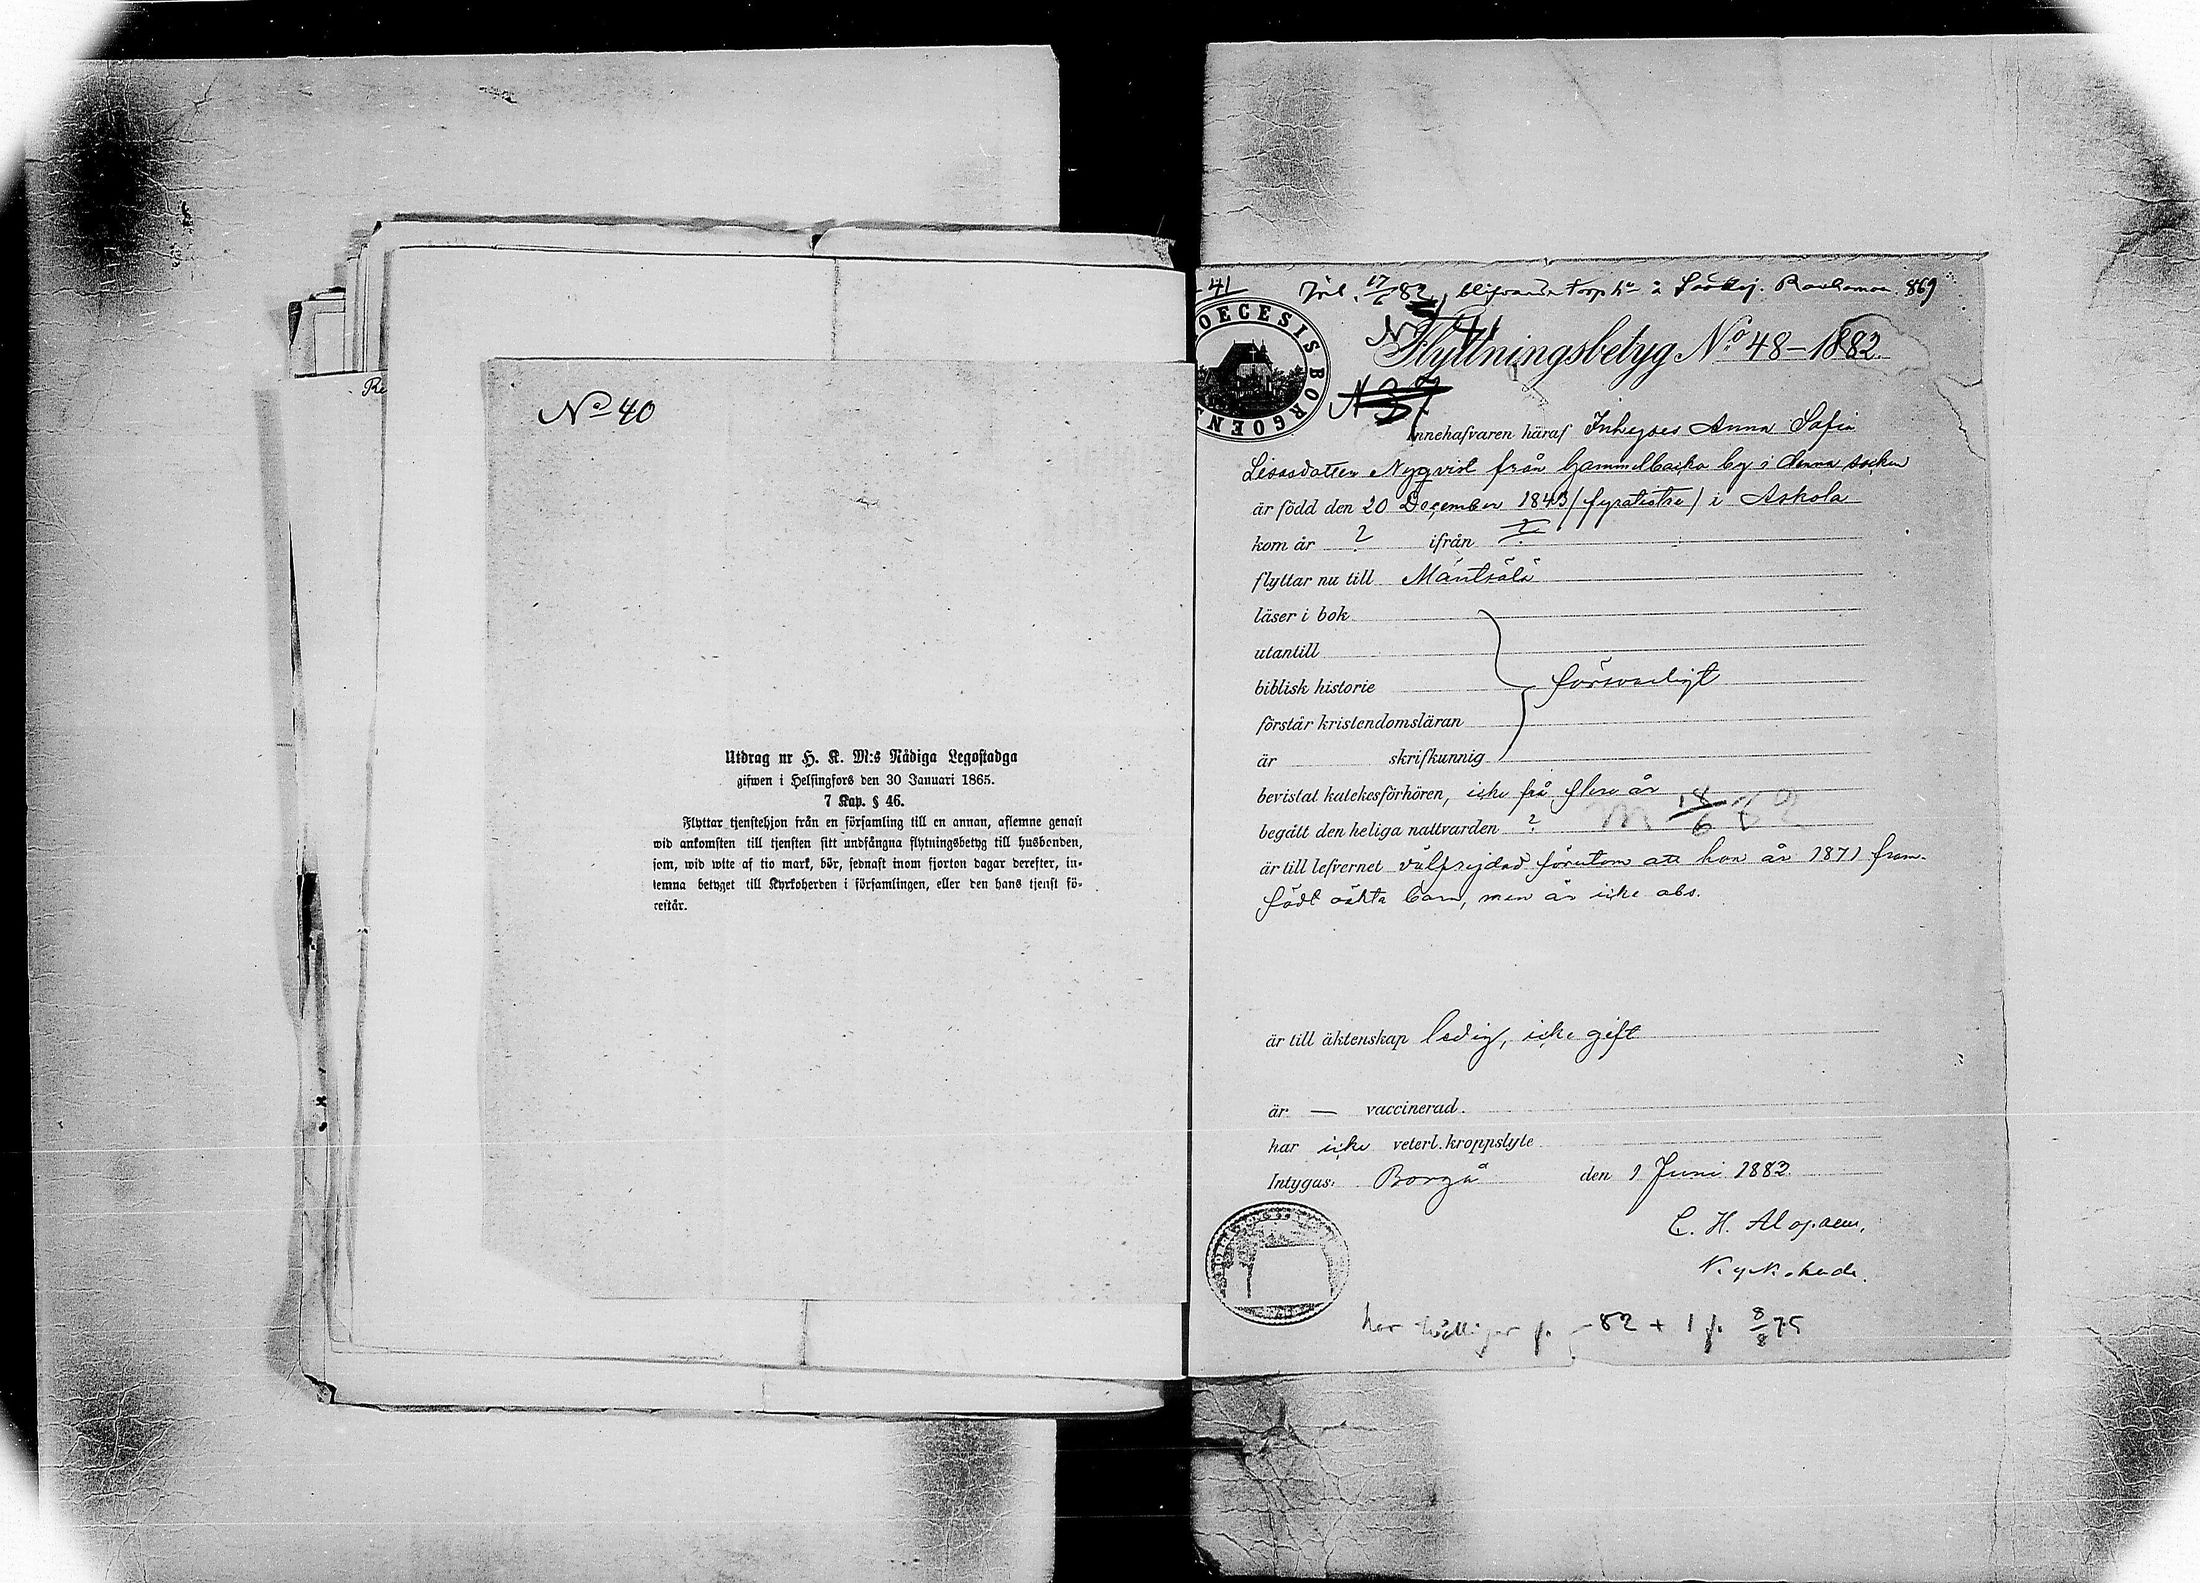 Nº 40
Utdrag ur H. K. M:s Nådiga Legostadga
gifwen i Helsingfors den 30 Januari 1865.
7 Kap. § 46.
Flyttar tjenstehjon från en församling till en annan, aflemne genast
wid ankomsten till tjensten sitt undfångna flytningsbetyg till husbonden,
som, wid wite af tio mark, bör, sednast inom fjorton dagar derefter, in-
lemna betyget till Kyrkoherden i församlingen, eller den hans tjenst fö-
restår.
41
17/6 82, blifvande 869
DIOECESIS BORGOENS
N 41
Flyttningsbetyg Nº 48–1882.
N 37
Innehafvaren häraf Inhyses Anna Sofia
Lisasdotter Nyqvist från Gammelbacka by i denna socken
är född den 20 December 1843 (fyratiotre) i Askola
kom år ? ifrån ?
flyttar nu till Mäntsälä
läser i bok
utantill
biblisk historie försvarligt
förstår kristendomsläran
är skrifkunnig
bevistat katekesförhören, icke på flere år
begått den heliga nattvarden ? 18/6 82
är till lefvernet välfrejdad förutom att hon år 1871 fram-
födt oäkta barn, men är icke abs.
är till äktenskap ledig, icke gift
är — vaccinerad.
har icke veterl. kroppslyte
Intygas: Borgå den 1 Juni 1882.
C. H. Alopaeus,
Kyrkoherde.
-82 + 1 f. 8/8 75